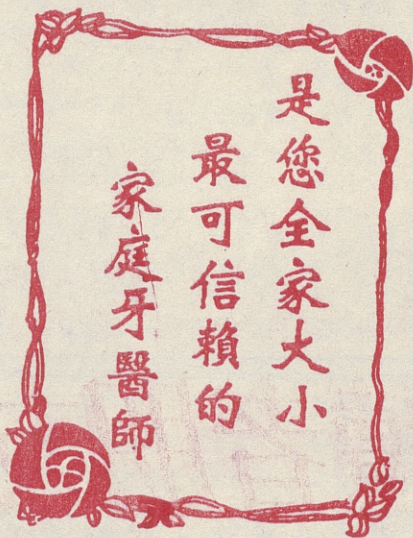 是您全家大小
最可信賴的
家庭牙醫師